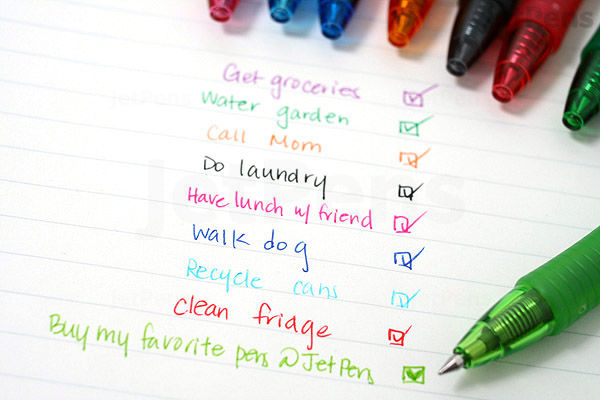 Get groceries
Water garden
Call Mom
Do laundry
Have lunch w/ friend
Walk dog
Recycle cans
Clean fridge
Buy my favorite pens @JetPens
JetPens